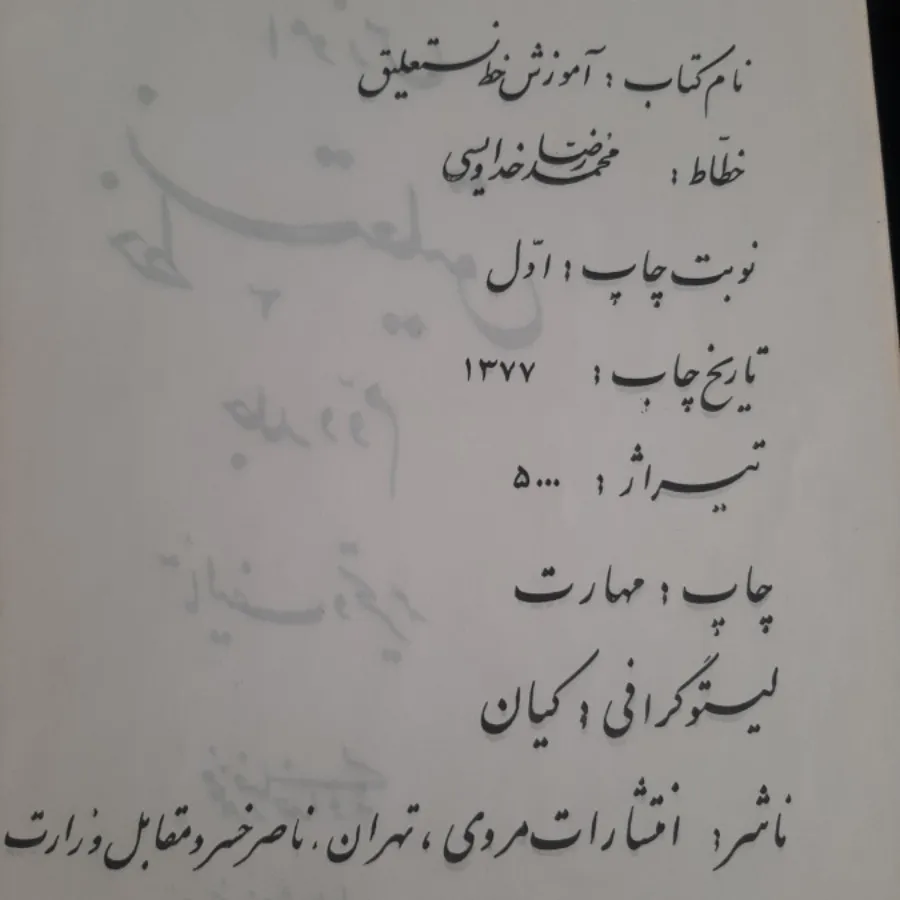 نام کتاب : آموزش خط نستعلیق
خطّاط : محمدرضا خداویسی
نوبت چاپ : اوّل
تاریخ چاپ : ۱۳۷۷
تیراژ : ۵۰۰۰
چاپ : مهارت
لیتوگرافی : کیان
ناشر : انتشارات مروی ، تهران . ناصر خسرو مقابل وزارت